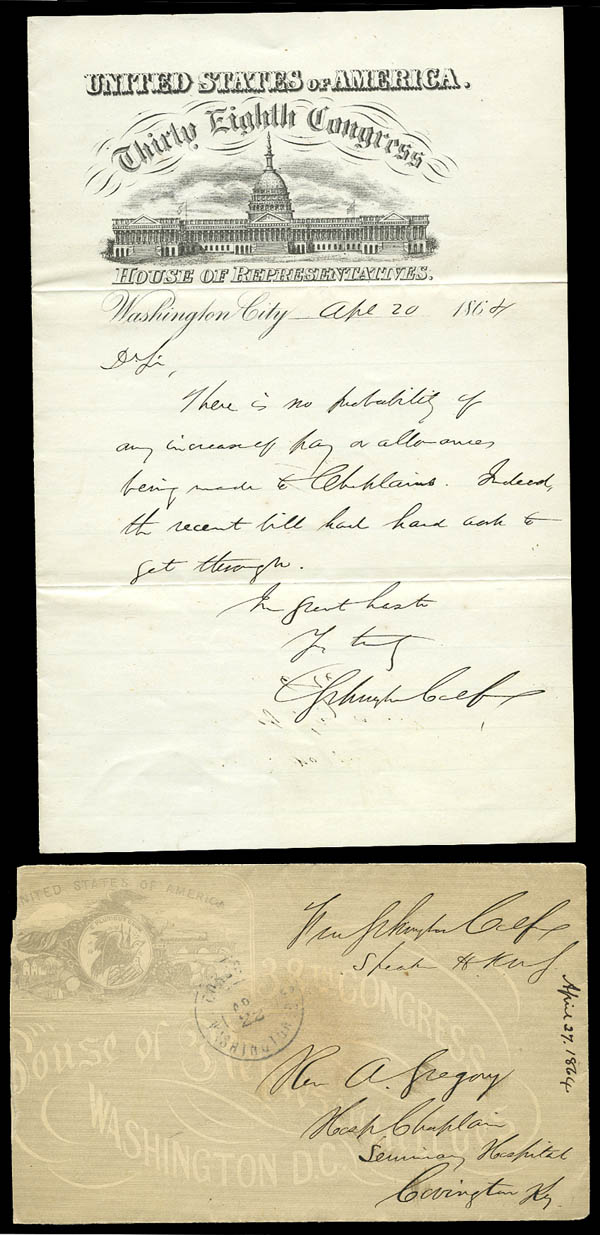 UNITED STATES OF AMERICA.
Thirty Eighth Congress
HOUSE OF REPRESENTATIVES.
Washington City Apl 20 1864
Dr Sir,
There is no probability of
any increase of pay or allowances
being made to Chaplains. Indeed,
the recent bill had hard work to
get through.
In great haste
Yr truly
Schuyler Colfax
UNITED STATES OF AMERICA
Free Schuyler Colfax
Speaker H. Reps
38TH CONGRESS
April 27. 1864
22
House of
WASHINGTON D.C.
Rev A. Gregory
Hosp Chaplain
Seminary Hospital
Covington Ky